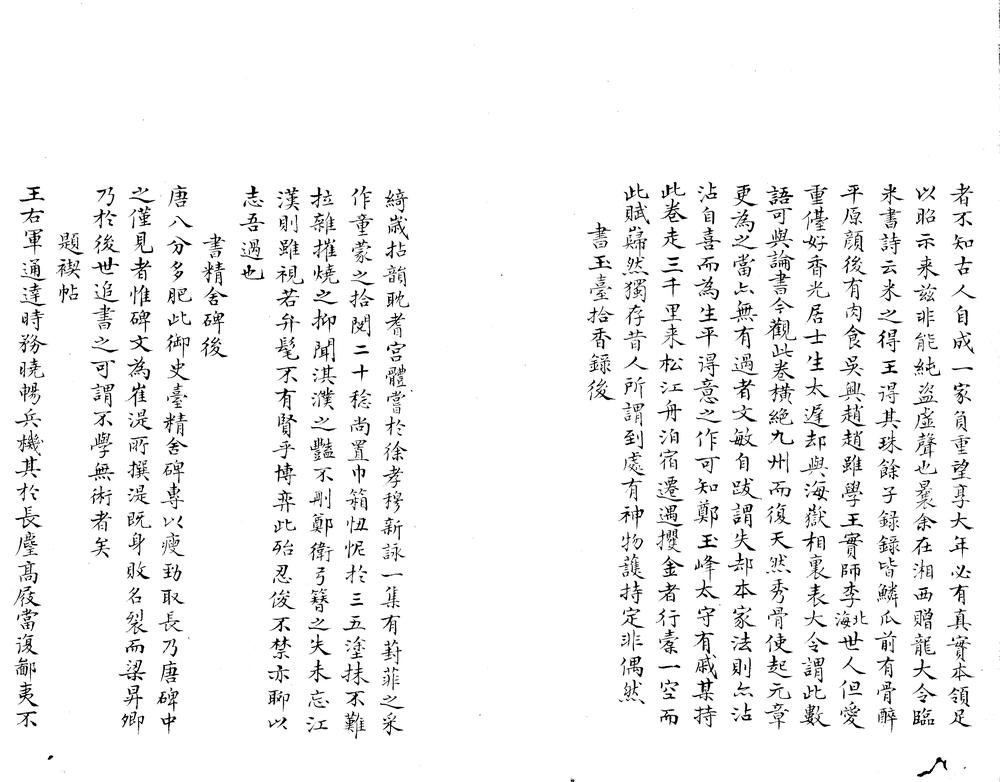 者不知古人自成一家負重望享大年必有真實本領足
以昭示来兹非能純盗虛聲也曩余在湘西贈龍大令臨
米書詩云米之得王得其珠餘子録録皆鱗瓜前有骨醉
平原顔後有肉食吳興趙趙雖學王實師李北海世人但愛
重儓好香光居士生太遲却與海嶽相裏表大令謂此數
語可與論書今觀此卷横絶九州而復天然秀骨使起元章
更為之當亦無有過者文敏自跋謂失却本家法則亦沾
沾自喜而為生平得意之作可知鄭玉峰太守有戚某持
此卷走三千里来松江舟泊宿遷遇攫金者行橐一空而
此賦巋然獨存昔人所謂到處有神物護持定非偶然
書玉臺拾香録後
綺歲拈韻耽耆宮體嘗於徐孝穆新詠一集有葑菲之采
作童蒙之拾閱二十稔尚置巾箱忸怩於三五塗抹不難
拉雜摧燒之抑聞淇濮之豔不刪鄭衛弓簪之失未忘江
漢則雖視若弁髦不有賢乎博弈此殆忍俊不禁亦聊以
志吾過也
書精舍碑後
唐八分多肥此御史臺精舍碑專以瘦勁取長乃唐碑中
之僅見者惟碑文為崔湜所撰湜既身敗名裂而梁昇卿
乃於後世追書之可謂不學無術者矣
題禊帖
王右軍通達時務曉暢兵機其於長塵高屐當復鄙夷不